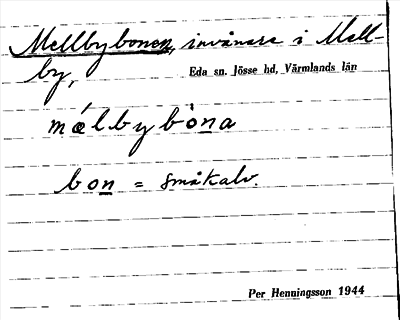 Mellbybonen, invånare i Mell-
by,
Eda sn. Jösse hd, Värmlands län
mǽlbybòna
bon = småkalv.
Per Henningsson 1944